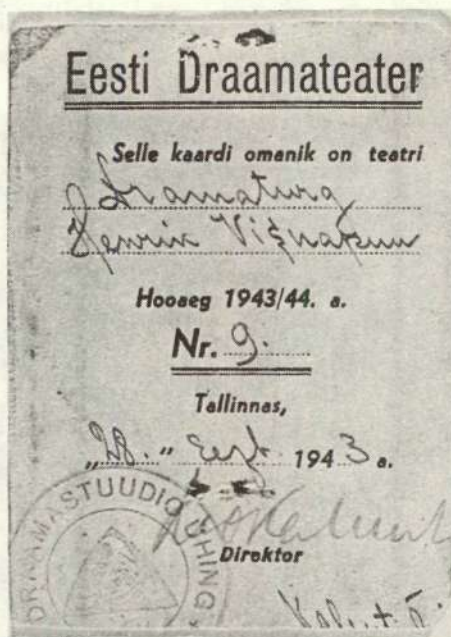 Eesti Draamateater
Selle kaardi omanik on teatri
Dramaturg
Henrik Visnapuu
Hooaeg 1943/44. a.
Nr. 9.
Tallinnas,
„28.” Sept. 1943 a.
DRAAMASTUUDIO ÜHING
Direktor